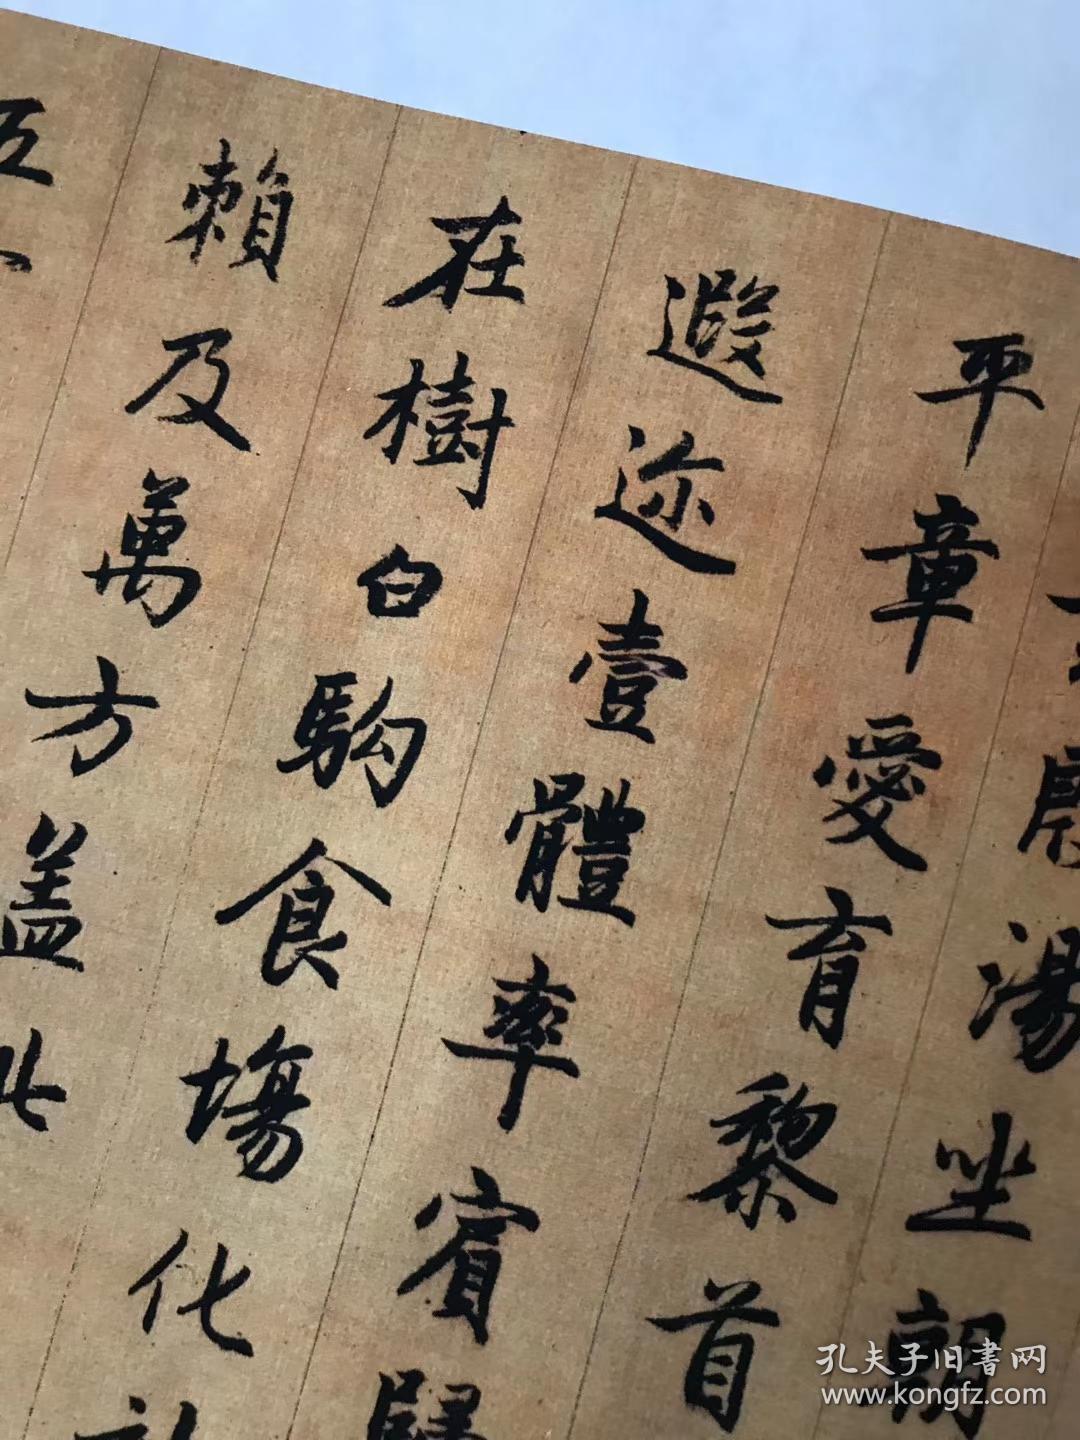 殷湯坐朝
平章愛育黎首
遐迩壹體率賓歸
在樹白駒食塲化
賴及萬方盖此
五
孔夫子旧書网
www.kongfz.com